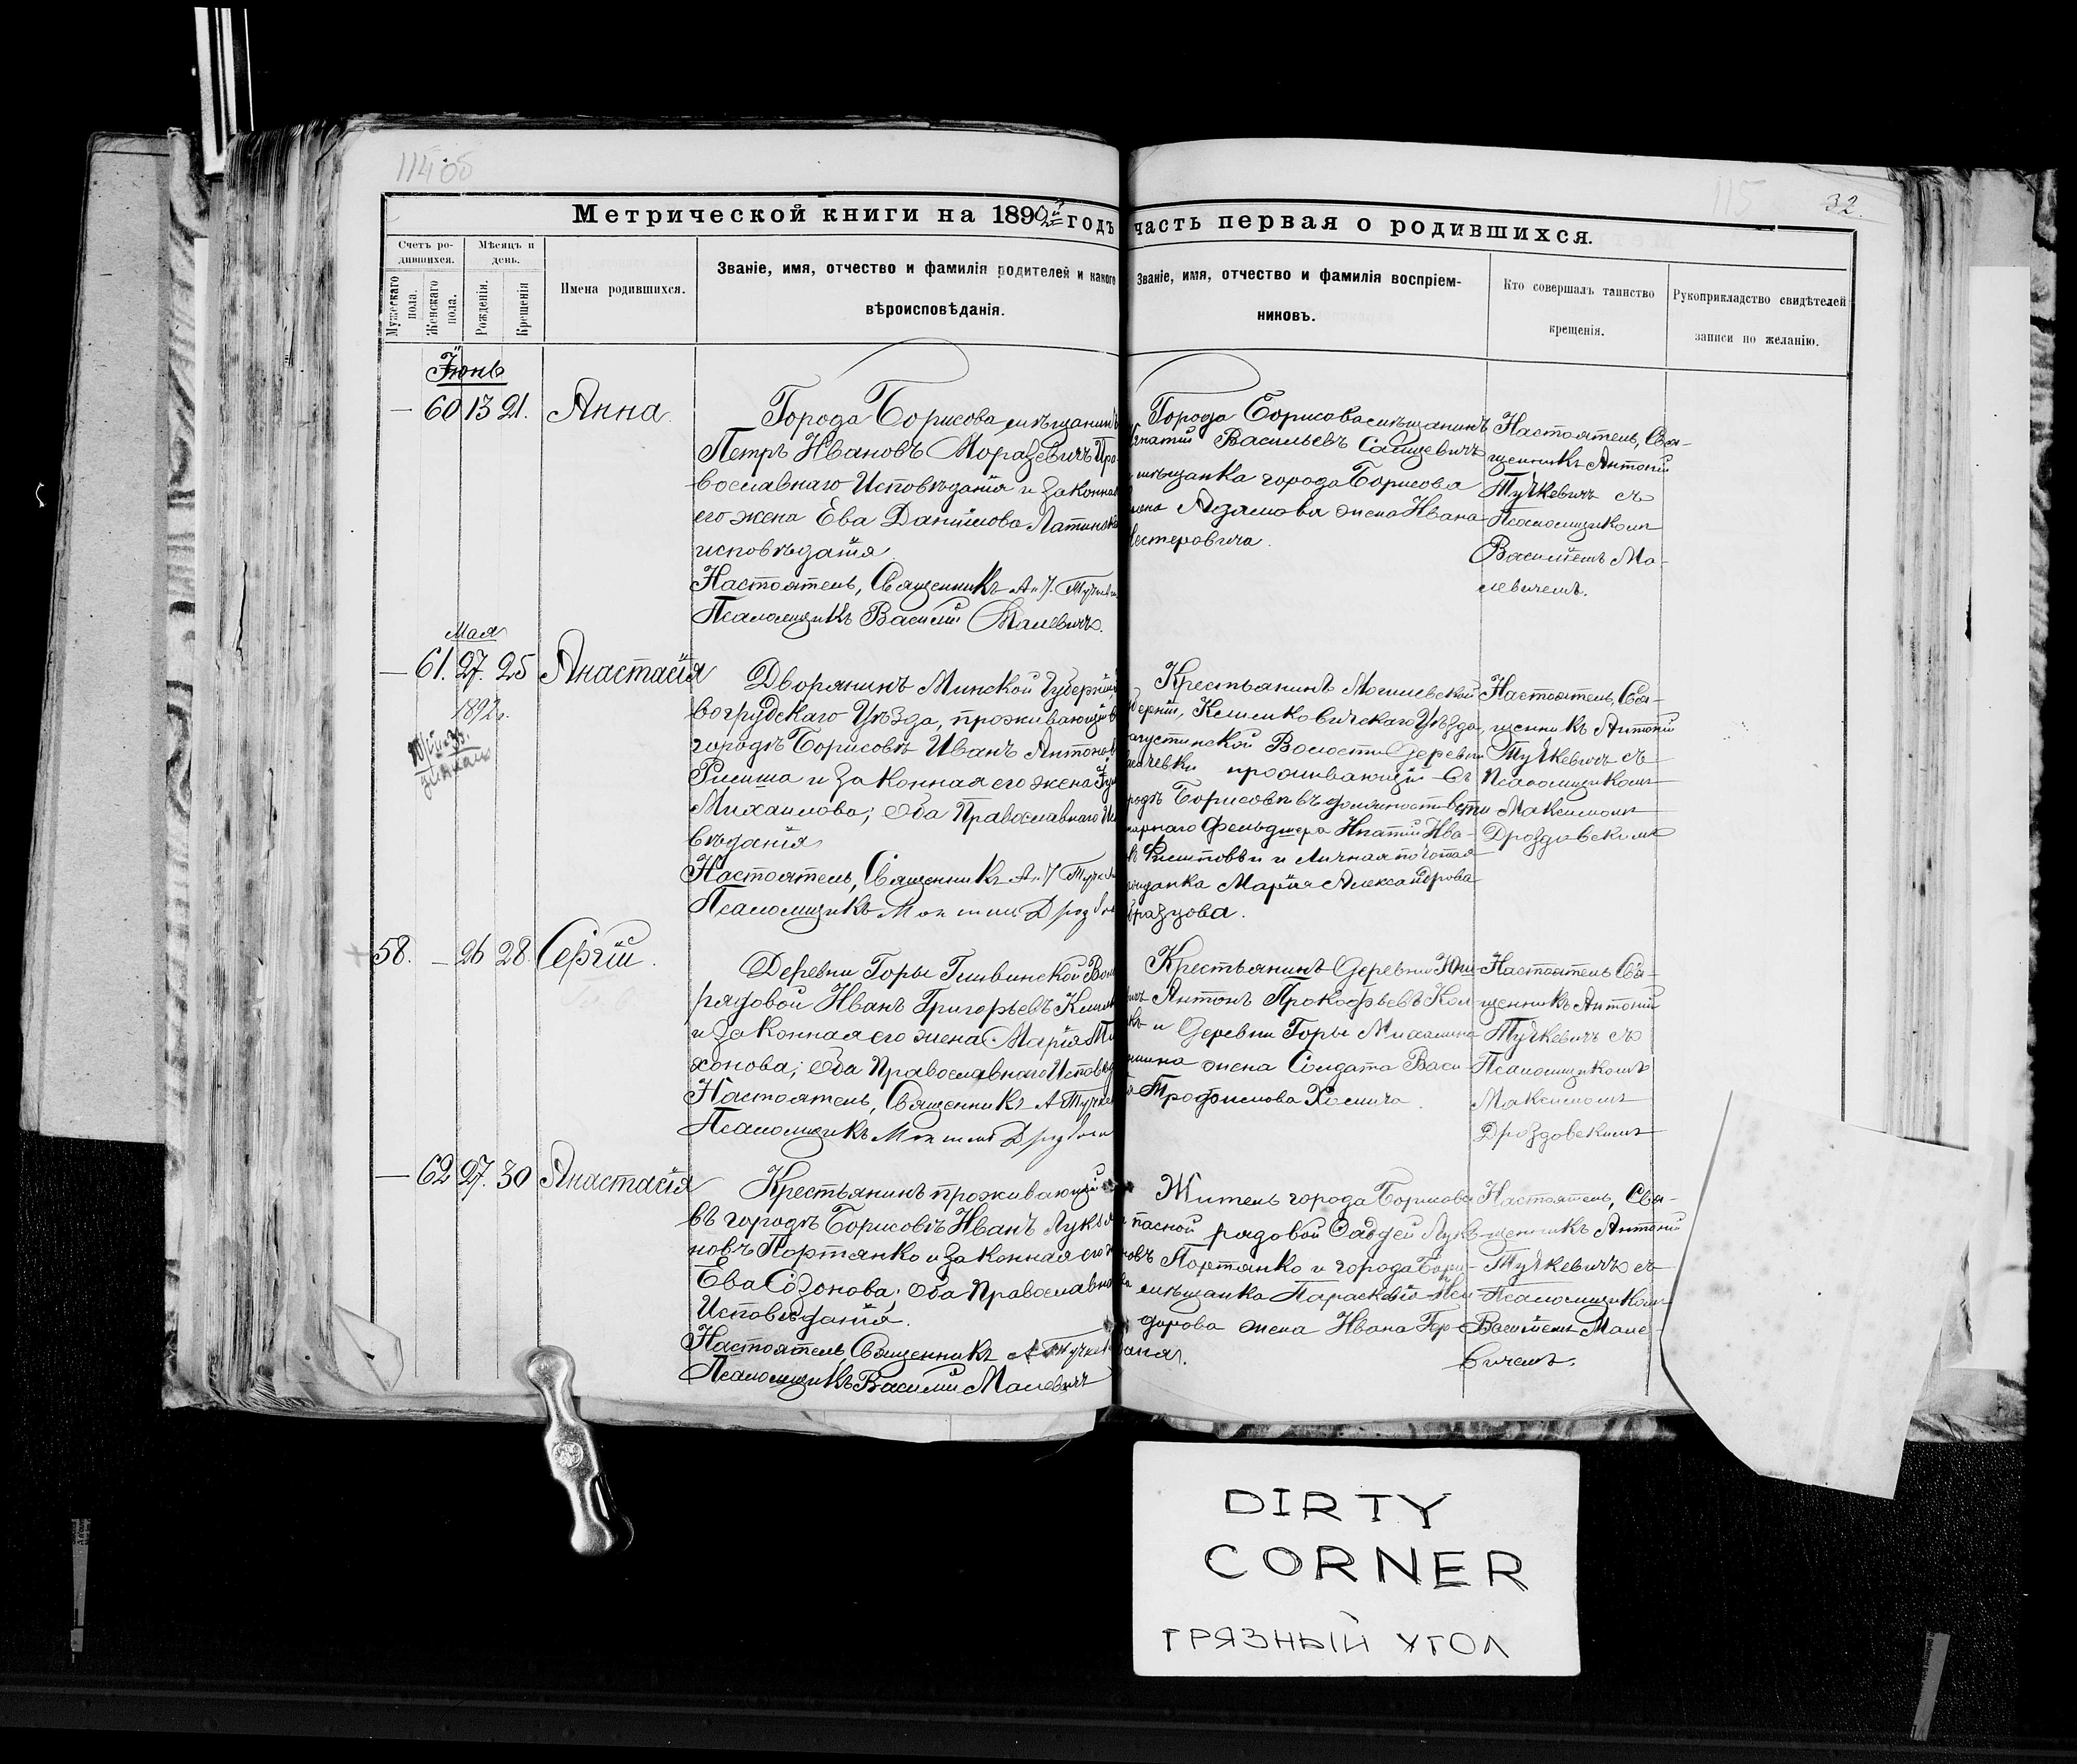 114 об
115
32.
Метрической книги на 189 годъ
часть первая о родившихся.
Счетъ ро-
дившихся.
Мѣсяцъ и
день.
Мужескаго
пола.
Женскаго
пола.
Рожденія.
Крещенія
Имена родившихся.
Званіе, имя, отчество и фамилія родителей и какого
вѣроисповѣданія.
Званіе, имя, отчество и фамилія воспріем-
никовъ.
Кто совершалъ таинство
крещенія.
Рукоприкладство свидѣтелей
записи по желанію.
Іюнь
— 60 13 21. Анна.
Города Борисова мѣщанинъ
Петръ Ивановъ Моразевичъ Пра-
вославнаго Исповѣданія и законная
его жена Ева Даніилова Латинска
исповѣданія
Настоятель, Священникъ
Псаломщикъ Василій Малевичъ.
Города Борисова мѣщанинъ
Игнатій Васильевъ Сайцевичъ
мѣщанка города Борисова
Адамова жена Ивана
Нестеровича.
Настоятель, Свя-
щенникъ Антоній
Тучкевичъ съ
Псаломщикомъ
Василіемъ Ма-
левичемъ.
Мая
— 61. 27. 25 Анастасія
1892 г.
Дворянинъ Минской Губерніи,
вогрудскаго Уѣзда, проживающій в
городѣ Борисовѣ Иванъ Антонов
и законная его жена
Михаилова; Оба Православнаго Ис
вѣданія
Настоятель, Священникъ
Псаломщикъ
Крестьянинъ Могилевской
берніи, Климовическаго Уѣзда,
Волости Деревни
проживающій въ
родѣ Борисовѣ въ должности вете
нарнаго Фельдшера Ипатій Ива-
и Личная почотная
жданка Марія Александрова
бразцова.
Настоятель, Свя-
щенникъ Антоній
Тучкевичъ съ
Псаломщикомъ
Максимомъ
Дроздовскимъ
58. — 26 28. Сергій.
Деревни Горы Гливинской Вол
рядовой Иванъ Григорьевъ
и законная его жена Марія Ти
хонова; Оба Православнаго Исповѣд
Настоятель, Священникъ А Тучке
Псаломщикъ
Крестьянинъ Деревни
Антонъ Прокофьевъ
и Деревни Горы
жена Солдата Васи-
Трофимова Хомича.
Настоятель Свя-
щенникъ Антоній
Тучкевичъ съ
Псаломщикомъ
Максимомъ
Дроздовскимъ
— 62 27. 30 Анастасія
Крестьянинъ проживающій
въ городѣ Борисовѣ Иванъ Лукья
новъ Портянко и законная его ж
Ева Созонова; Оба Православнаго
Исповѣданія.
Настоятель Священникъ А Тучке
Псаломщикъ Василій Малевичъ
Житель города Борисова
пасной рядовой Фаддей Лукь-
новъ Портянко и города Бори-
мѣщанка Параскевія Иси
дорова жена Ивана Гер-
Настоятель, Свя-
щенникъ Антоній
Тучкевичъ съ
Псаломщикомъ
Василіемъ Мале-
вичемъ.
DIRTY
CORNER
ГРЯЗНЫЙ УГОЛ